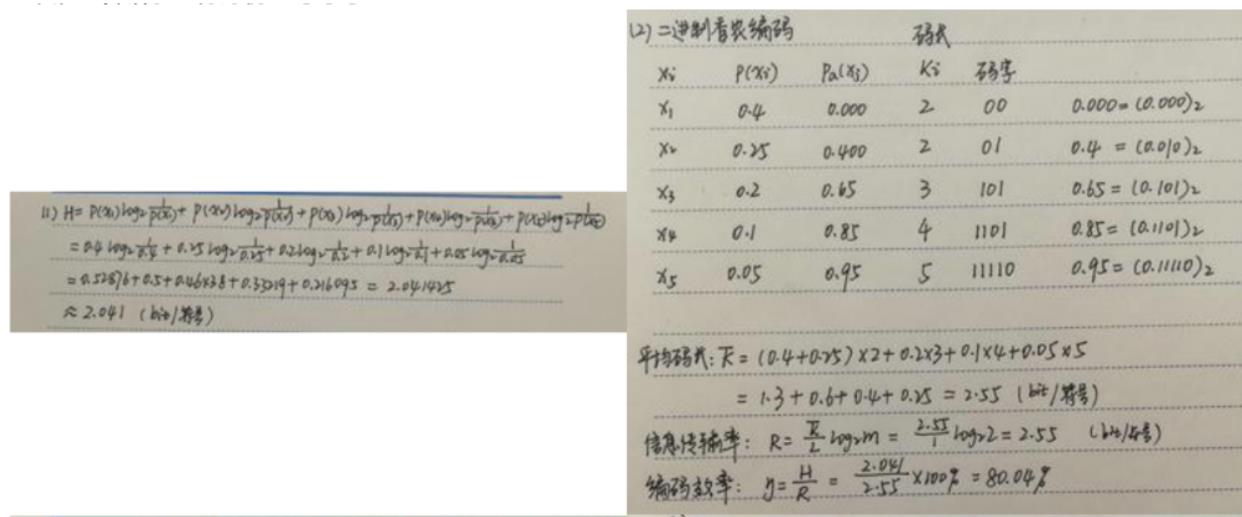 (1) H = P(x₁)log₂ 1/P(x₁) + P(x₂)log₂ 1/P(x₂) + P(x₃)log₂ 1/P(x₃) + P(x₄)log₂ 1/P(x₄) + P(x₅)log₂ 1/P(x₅)
= 0.4 log₂ 1/0.4 + 0.25 log₂ 1/0.25 + 0.2 log₂ 1/0.2 + 0.1 log₂ 1/0.1 + 0.05 log₂ 1/0.05
= 0.52876 + 0.5 + 0.46438 + 0.33219 + 0.216095 = 2.041425
≈ 2.041 (bit/符号)
(2) 二进制香农编码
xᵢ P(xᵢ) Pa(xⱼ) 码长 Kᵢ 码字
x₁ 0.4 0.000 2 00 0.000 = (0.000)₂
x₂ 0.25 0.400 2 01 0.4 = (0.010)₂
x₃ 0.2 0.65 3 101 0.65 = (0.101)₂
x₄ 0.1 0.85 4 1101 0.85 = (0.1101)₂
x₅ 0.05 0.95 5 11110 0.95 = (0.11110)₂
平均码长: K̅ = (0.4+0.25)×2+0.2×3+0.1×4+0.05×5
= 1.3+0.6+0.4+0.25 = 2.55 (bit/符号)
信息传输率: R = K̅/L log₂m = 2.55/1 log₂2 = 2.55 (bit/符号)
编码效率: η = H/R = 2.041/2.55 ×100% = 80.04%